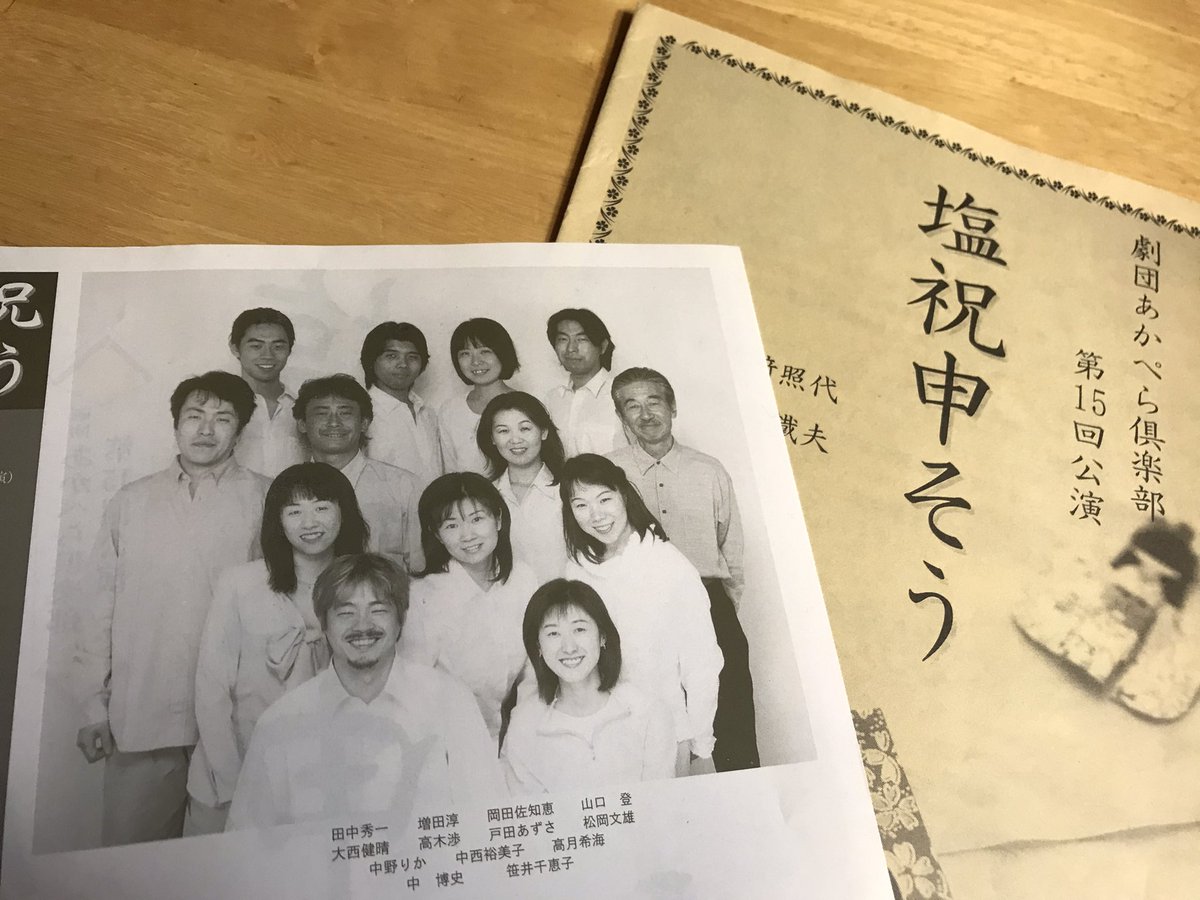 劇団あかぺら倶楽部
第15回公演
塩祝申そう
照代
哉夫
祝
う
田中秀一 増田淳 岡田佐知恵 山口 登
大西健晴 高木渉 戸田あずさ 松岡文雄
中野りか 中西裕美子 髙月希海
中 博史 笹井千恵子